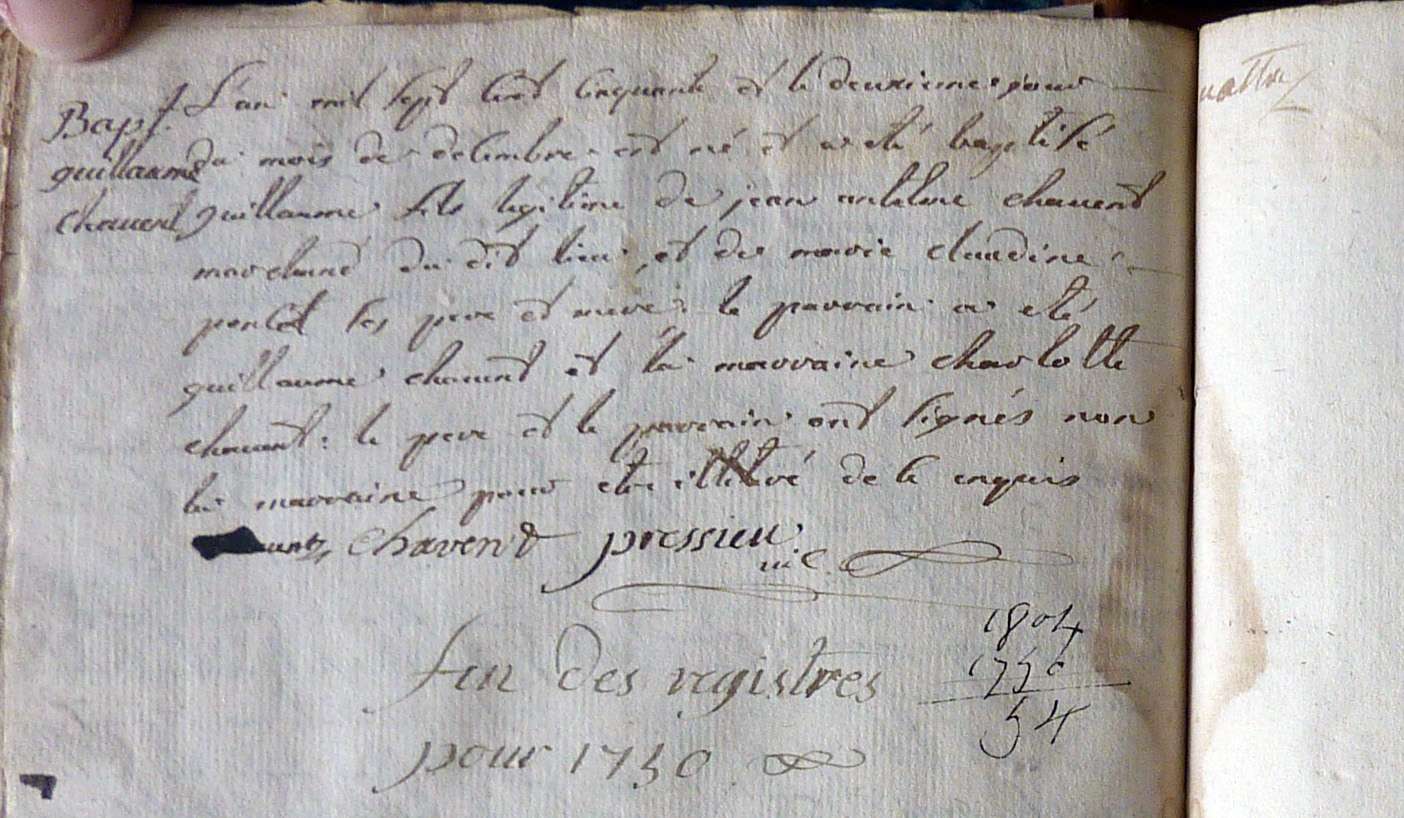 Bapt.
guillaume
chavent
L'an mil sept cent cinquante et le deuxieme jour
du mois de decembre est né et a eté baptisé
guillaume fils legitime de jean antelme chavent
marchand du dit lieu et de marie claudine
poncet ses pere et mere. le parrain a eté
guillaume chavent et la marraine charlotte
chavent: le pere et le parrain ont signés non
la marraine pour etre illitéré de ce enquis
chavent pressieu
vic.
fin des registres
pour 1750
1804
1750
54